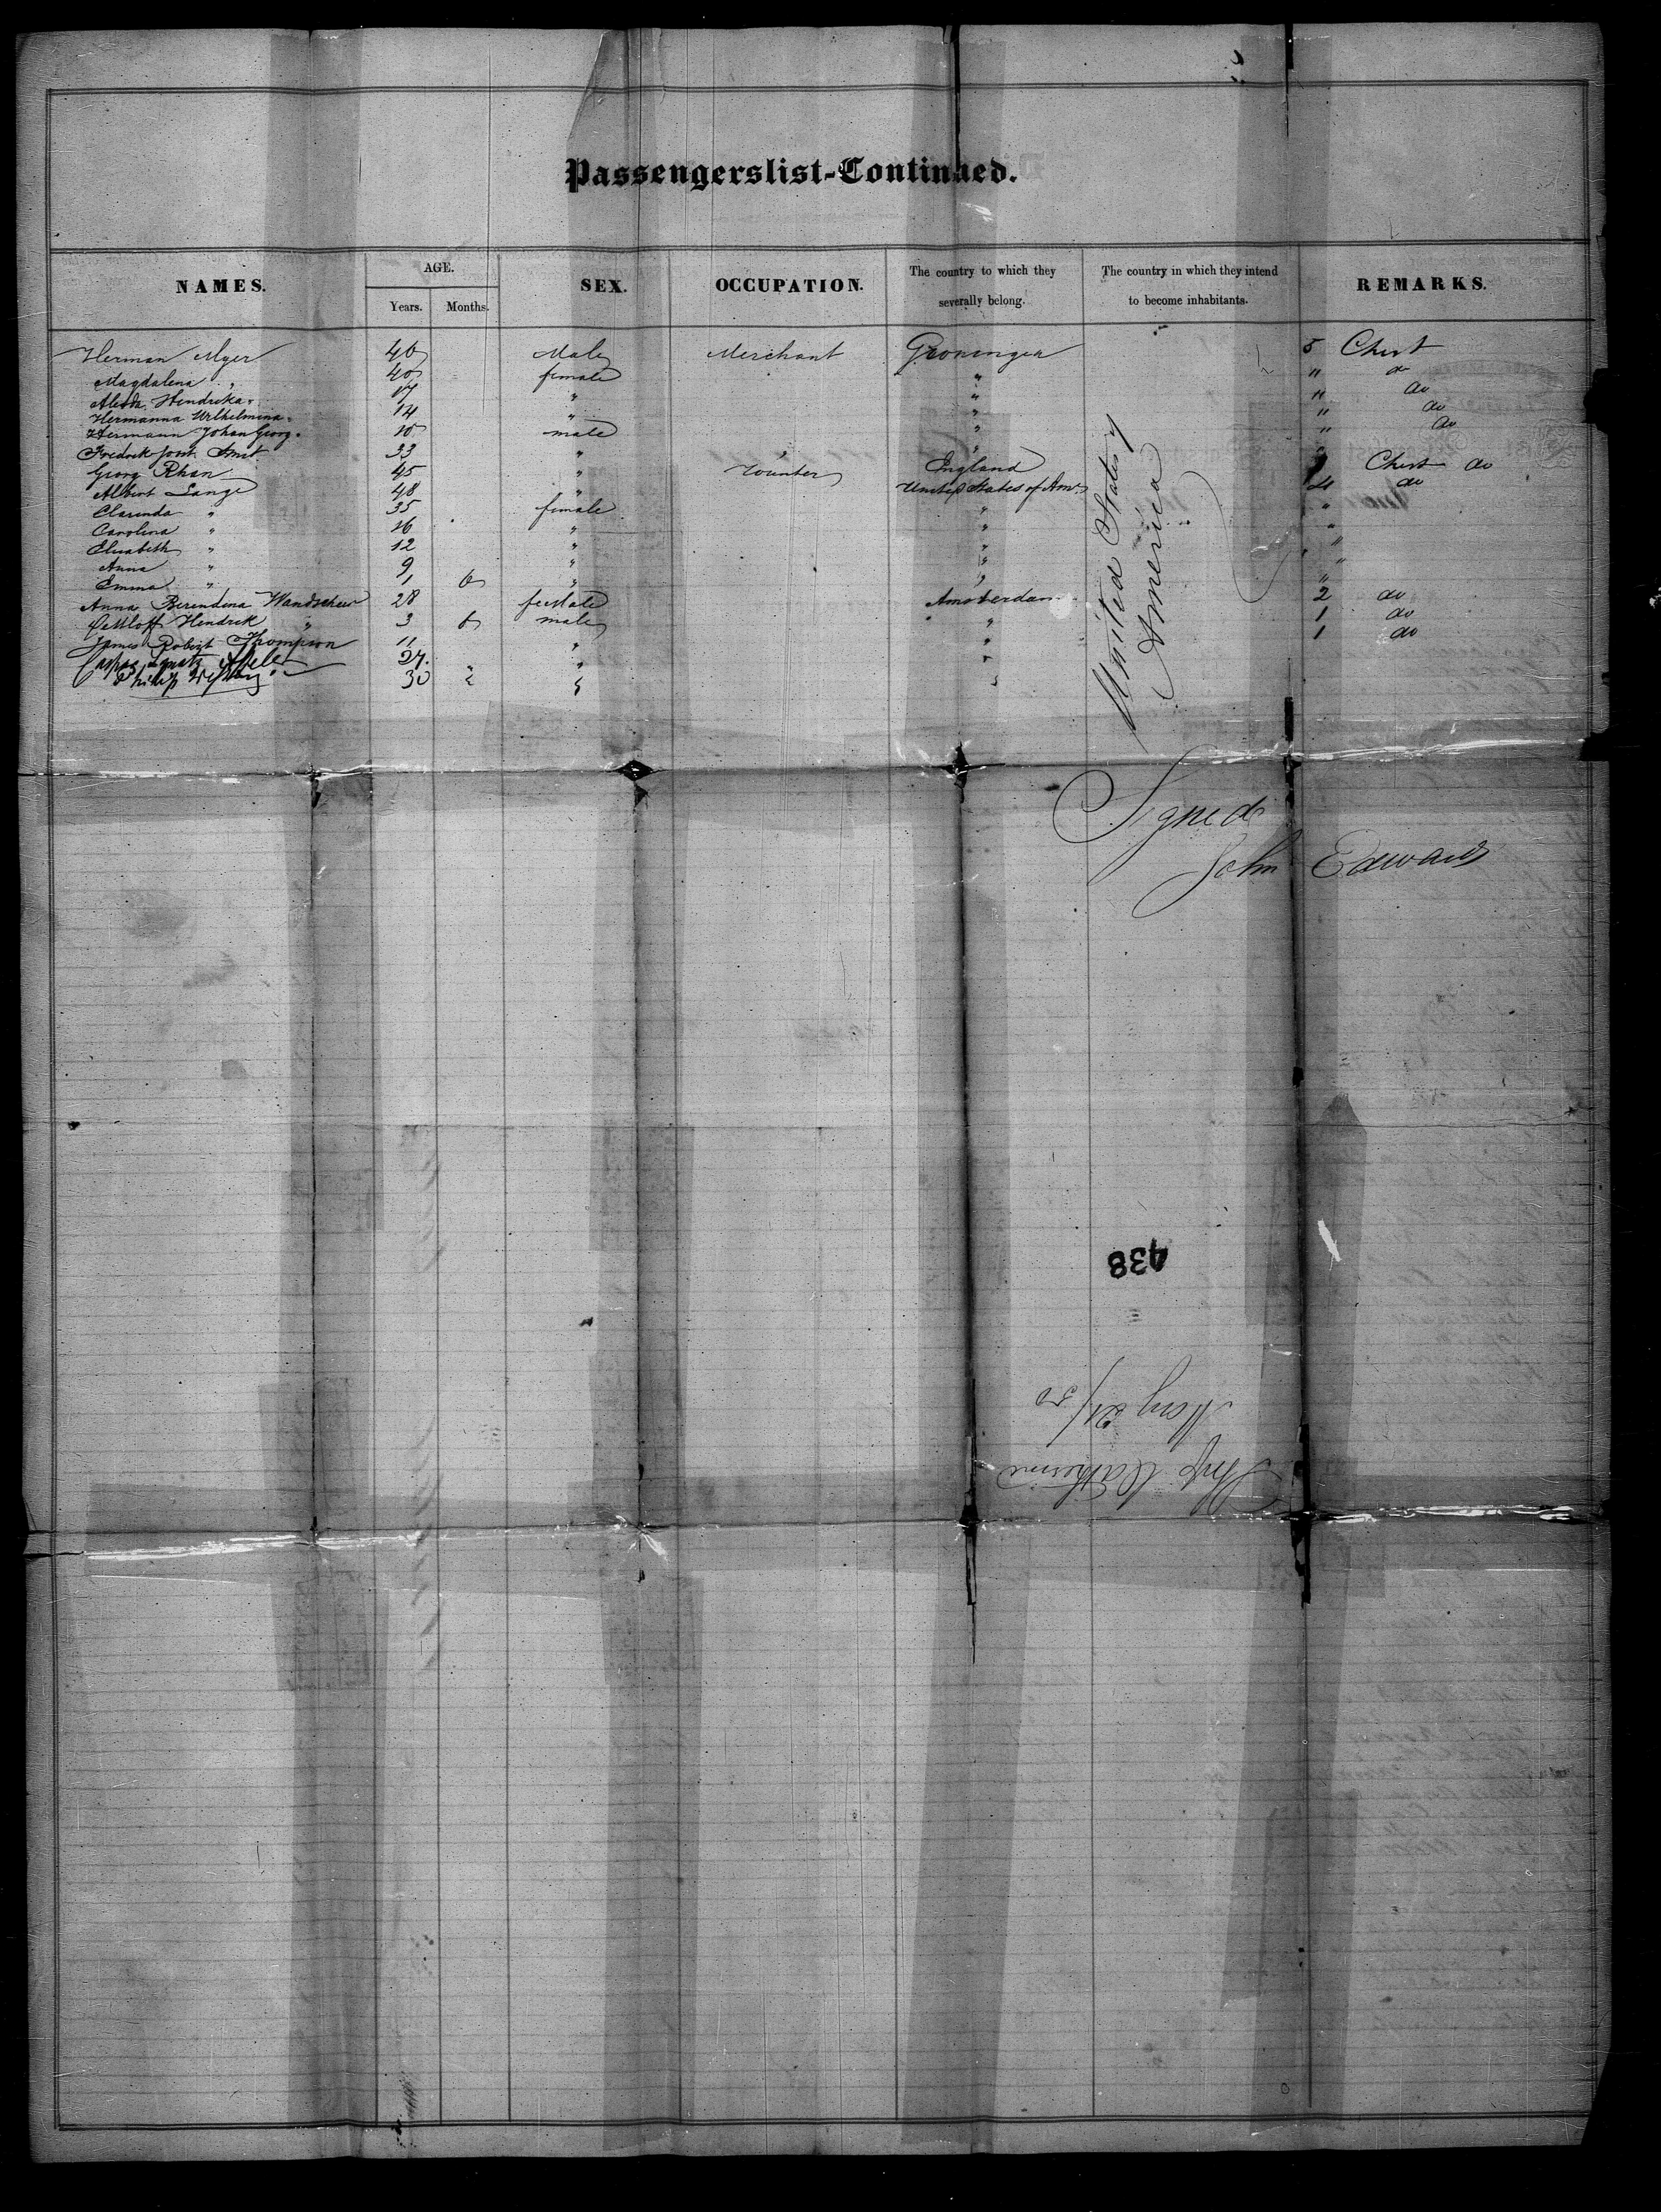 Passengerslist-Continued.
NAMES. AGE. SEX. OCCUPATION. The country to which they severally belong. The country in which they intend to become inhabitants. REMARKS.
Years. Months.
Herman Myer 46 Male Merchant Groningen 5 Chest
Magdalena " 40 female " " do
Alida Hendrika " 17 " " " do
Hermanna Wilhelmina " 14 " " " do
Hermann Johan Georg " 10 male " " do
Fredrik Joost Smit 33 " "
Georg Rhan 45 " England 1 Chest do
Albert Lange 48 " United States of Am. 4 do
Clarinda " 35 female " "
Carolina " 16 " " "
Elisabeth " 12 " " "
Anna " 9 " " "
Emma " 1 6 " " "
Anna Berendina Wandscheer 28 female Amsterdam 2 do
Detloff Hendrik " 3 6 male " 1 do
James Robert Thompson 11 " " 1 do
Caspar Ignatz 27. " " "
Philip 30
United States of
America
Signed
John Edwards
438
May 21/50
Ship Catherine